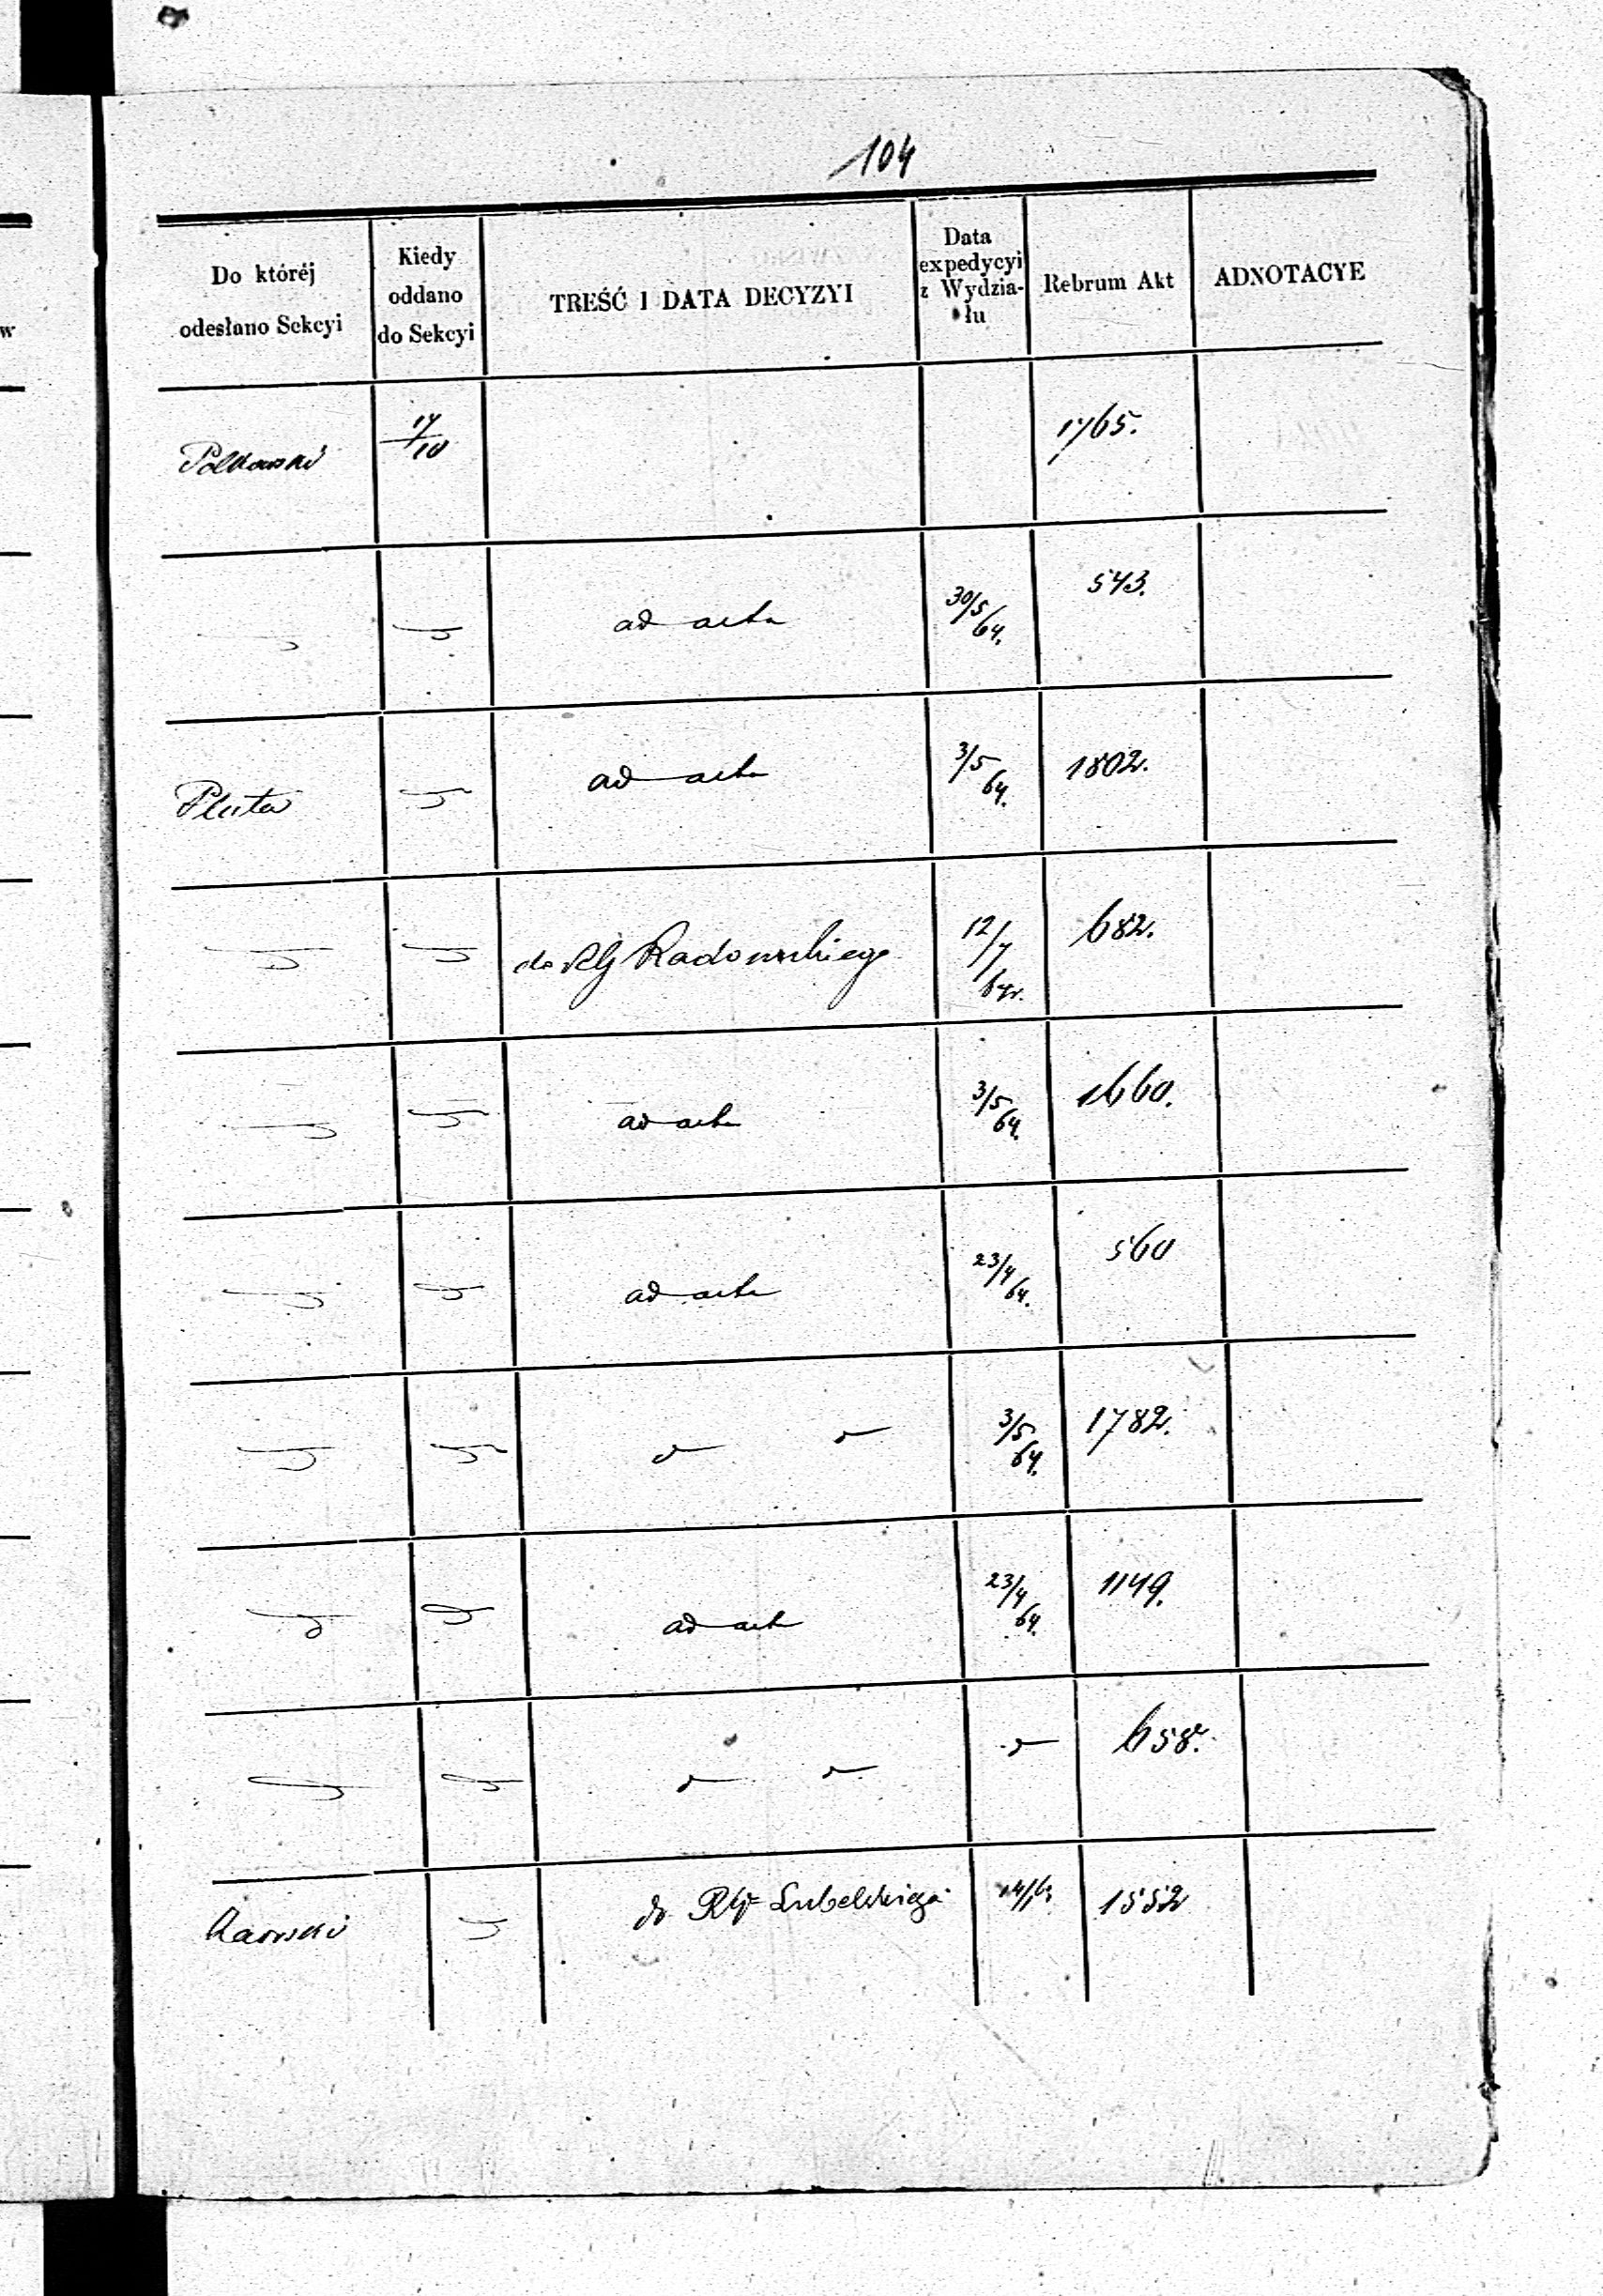 104
Do któréj odesłano Sekcyi
Kiedy oddano do Sekcyi
TREŚĆ I DATA DECYZYI
Data expedycyi z Wydzia-łu
Rebrum Akt
ADNOTACYE
Polkowski 17/10 1765.
ad acta 30/5/64. 543.
Pluta ad acta 3/5/64. 1802.
do RG Radomskiego 12/7/64r. 682.
ad acta 3/5/64. 1660.
ad acta 23/4/64. 560
3/5/64. 1782.
ad acta 23/4/64. 1149.
658.
do RG Lubelskiego 1552
w